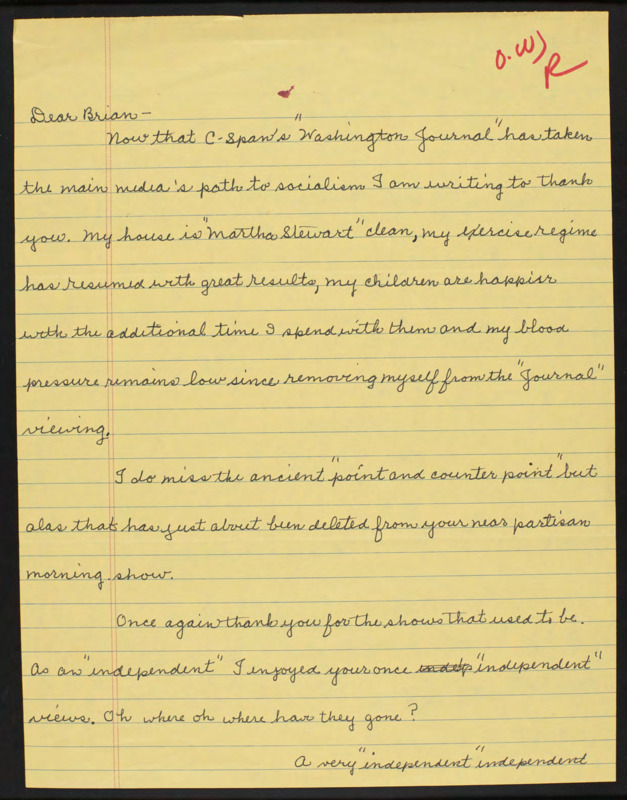 O.W) R
Dear Brian —
Now that C-Span's "Washington Journal" has taken
the main media's path to socialism I am writing to thank
you. My house is "Martha Stewart" clean, my exercise regime
has resumed with great results, my children are happier
with the additional time I spend with them and my blood
pressure remains low since removing myself from the "Journal"
viewing.
I do miss the ancient "point and counter point" but
alas that has just about been deleted from your near partisan
morning show.
Once again thank you for the shows that used to be.
As an "independent" I enjoyed your once "independent"
views. Oh where oh where have they gone?
A very "independent" independent